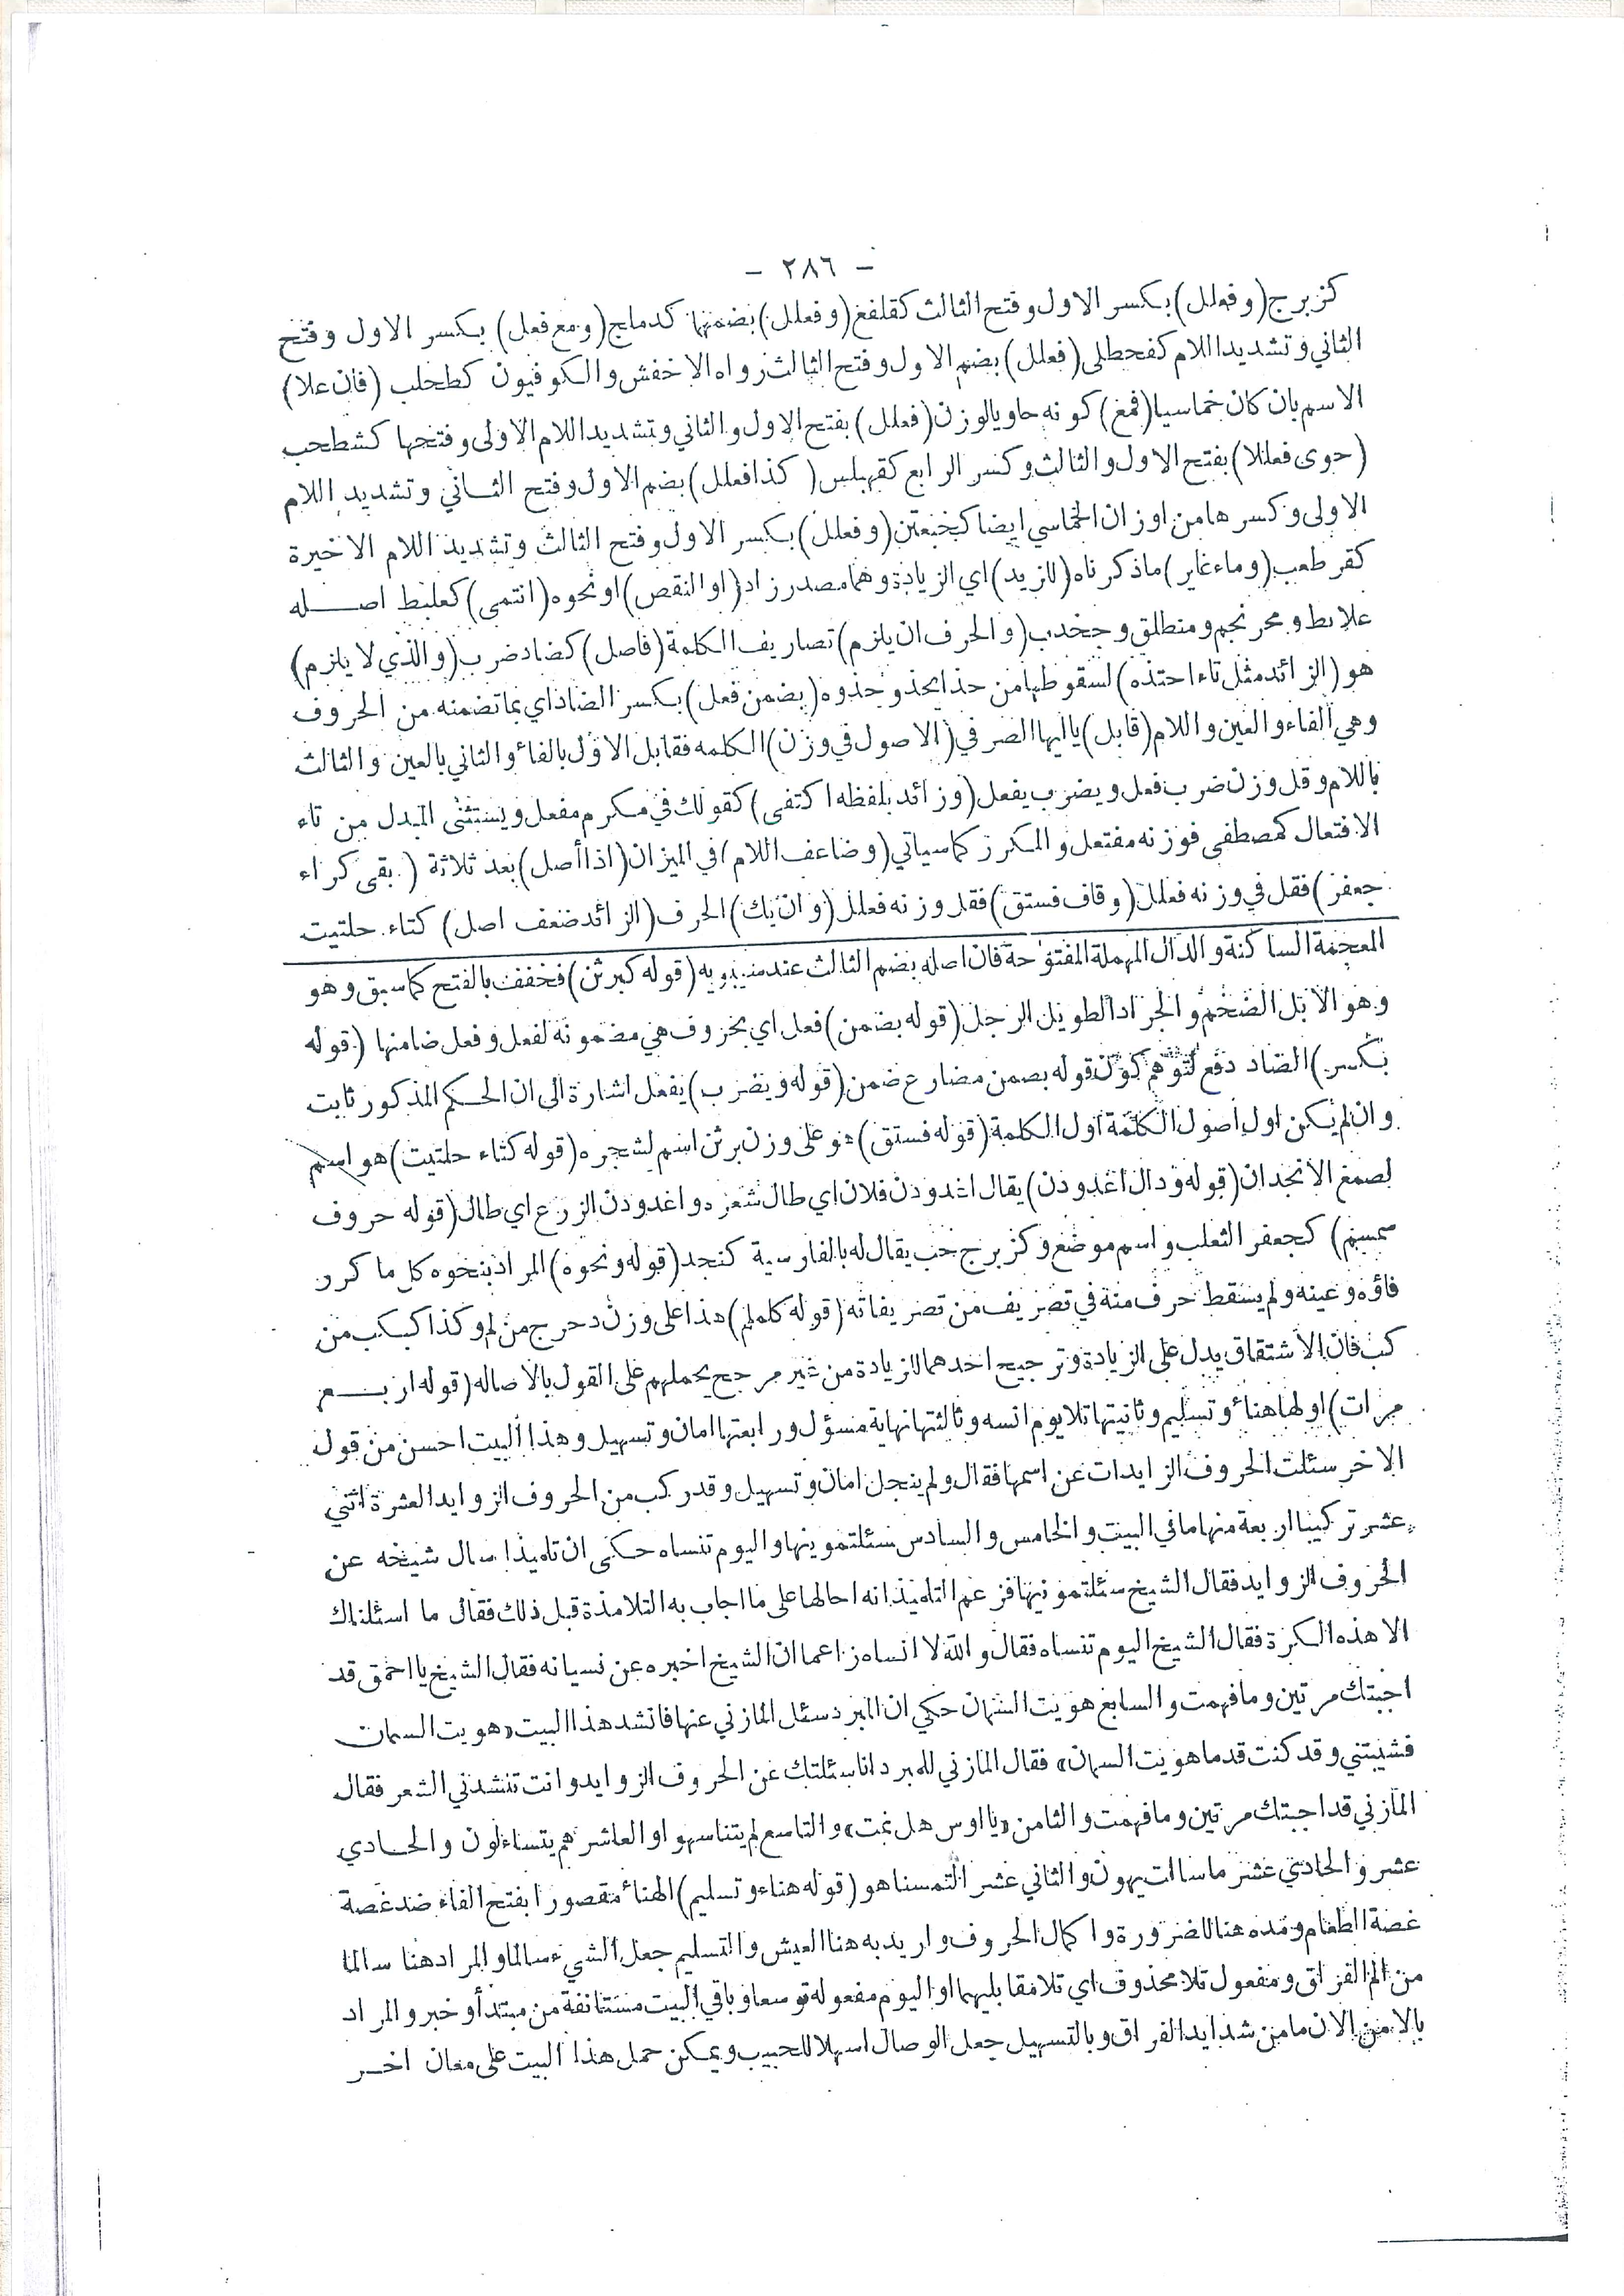 - ٢٨٦ -
كزبرج (وفعلل) بكسر الاول وفتح الثالث كقلفغ (وفعلل) بضمها كدملج (ومع فعل) بكسر الاول وفتح
الثاني وتشديد اللام كفحطل (فعلل) بضم الاول وفتح الثالث رواه الاخفش والكوفيون كطحلب (فان علا)
الاسم بان كان خماسيا (فمع) كونه حاويا لوزن (فعلل) بفتح الاول والثاني وتشديد اللام الاولى وفتحها كشطحب
(حوى فعللا) بفتح الاول والثالث وكسر الرابع كقهبلس (كذا فعلل) بضم الاول وفتح الثاني وتشديد اللام
الاولى وكسرها من اوزان الخماسي ايضا كخبعثن (وفعلل) بكسر الاول وفتح الثالث وتشديد اللام الاخيرة
كقرطعب (وماء غاير) ما ذكرناه (للزيد) اي الزيادة وهما مصدر زاد (او النقص) او نحوه (انتمى) كعلبط اصله
علابط ومحرنجم ومنطلق وجخدب (والحرف ان يلزم) تصاريف الكلمة (فاصل) كضاد ضرب (والذي لا يلزم)
هو (الزائد مثل تاء احتذه) لسقوطها من حذا يحذو حذوه (بضمن فعل) بكسر الضاد اي بما تضمنه من الحروف
وهي الفاء والعين واللام (قابل) يا ايها الصرفي (الاصول في وزن) الكلمه فقابل الاول بالفاء والثاني بالعين والثالث
باللام وقل وزن ضرب فعل ويضرب يفعل (وزائد بلفظه اكتفى) كقولك في مكرم مفعل ويستثنى المبدل من تاء
الافتعال كمصطفى فوزنه مفتعل والمكرر كما سياتي (وضاعف اللام) في الميزان (اذا أصل) بعد ثلاثة (بقى كراء
جعفر) فقل في وزنه فعلل (وقاف فستق) فقل وزنه فعلل (وان يك) الحرف (الزائد ضعف اصل) كتاء حلتيت
المعجمة الساكنة والدال المهملة المفتوحة فان اصله بضم الثالث عند سيبويه (قوله كبرثن) فخفف بالفتح كما سبق وهو
وهو الابل الضخم والجراد الطويل الرجل (قوله بضمن) فعل اي بحروف هي مضمونة لفعل وفعل ضامنها (قوله
بكسر) الضاد دفع لتوهم كون قوله بضمن مضارع ضمن (قوله ويضرب) يفعل اشارة الى ان الحكم المذكور ثابت
وان لم يكن اول اصول الكلمة اول الكلمة (قوله فستق) هو على وزن برثن اسم لشجره (قوله كتاء حلتيت) هو اسم
لصمغ الانجدان (قوله ودال اغدودن) يقال اغدودن فلان اي طال شعره واغدودن الزرع اي طال (قوله حروف
سمسم) كجعفر الثعلب واسم موضع وكزبرج حب يقال له بالفارسية كنجد (قوله ونحوه) المراد بنحوه كل ما كرر
فاؤه وعينه ولم يسقط حرف منه في تصريف من تصريفاته (قوله كلملم) هذا على وزن دحرج من لم وكذا كبكب من
كب فان الاشتقاق يدل على الزيادة وترجيح احدهما للزيادة من غير مرجح يحملهم على القول بالاصاله (قوله اربع
مرات) اولها هناء وتسليم وثانيتها تلا يوم انسه وثالثتها نهاية مسؤل ورابعتها امان وتسهيل وهذا البيت احسن من قول
الاخر سئلت الحروف الزايدات عن اسمها فقال ولم ينجل امان وتسهيل وقد ركب من الحروف الزوايد العشرة اثني
عشر تركيبا اربعة منها ما في البيت والخامس والسادس سئلتمونيها واليوم تنساه حكى ان تلميذا سال شيخه عن
الحروف الزوايد فقال الشيخ سئلتمونيها فزعم التلميذ انه احالها على ما اجاب به التلامذة قبل ذلك فقال ما اسئلناك
الا هذه الكرة فقال الشيخ اليوم تنساه فقال والله لا انساه زاعما ان الشيخ اخبره عن نسيانه فقال الشيخ يا احمق قد
اجبتك مرتين وما فهمت والسابع هويت السمان حكي ان المبرد سئل المازني عنها فانشد هذا البيت «هويت السمان
فشيبتني وقد كنت قدما هويت السمان» فقال المازني للمبرد انا سئلتك عن الحروف الزوايد وانت تنشدني الشعر فقال
المازني قد اجبتك مرتين وما فهمت والثامن «يا اوس هل نمت» والتاسع لم يتناسهوا والعاشر هم يتساءلون والحادي
عشر والحادي عشر ما سالت يهون والثاني عشر التمسنا هو (قوله هناء وتسليم) الهناء مقصورا بفتح الفاء ضد غصة
غصة الطعام ومده هنا للضرورة واكمال الحروف واريد به هنا العيش والتسليم جعل الشيء سالما والمراد هنا سالما
من الم الفراق ومفعول تلا محذوف اي تلا مقابليهما او اليوم مفعوله توسعا وباقي البيت مستانفة من مبتدأ وخبر والمراد
بالامن الان مامن شدايد الفراق وبالتسهيل جعل الوصال اسهلا للحبيب ويمكن حمل هذا البيت على معان اخر